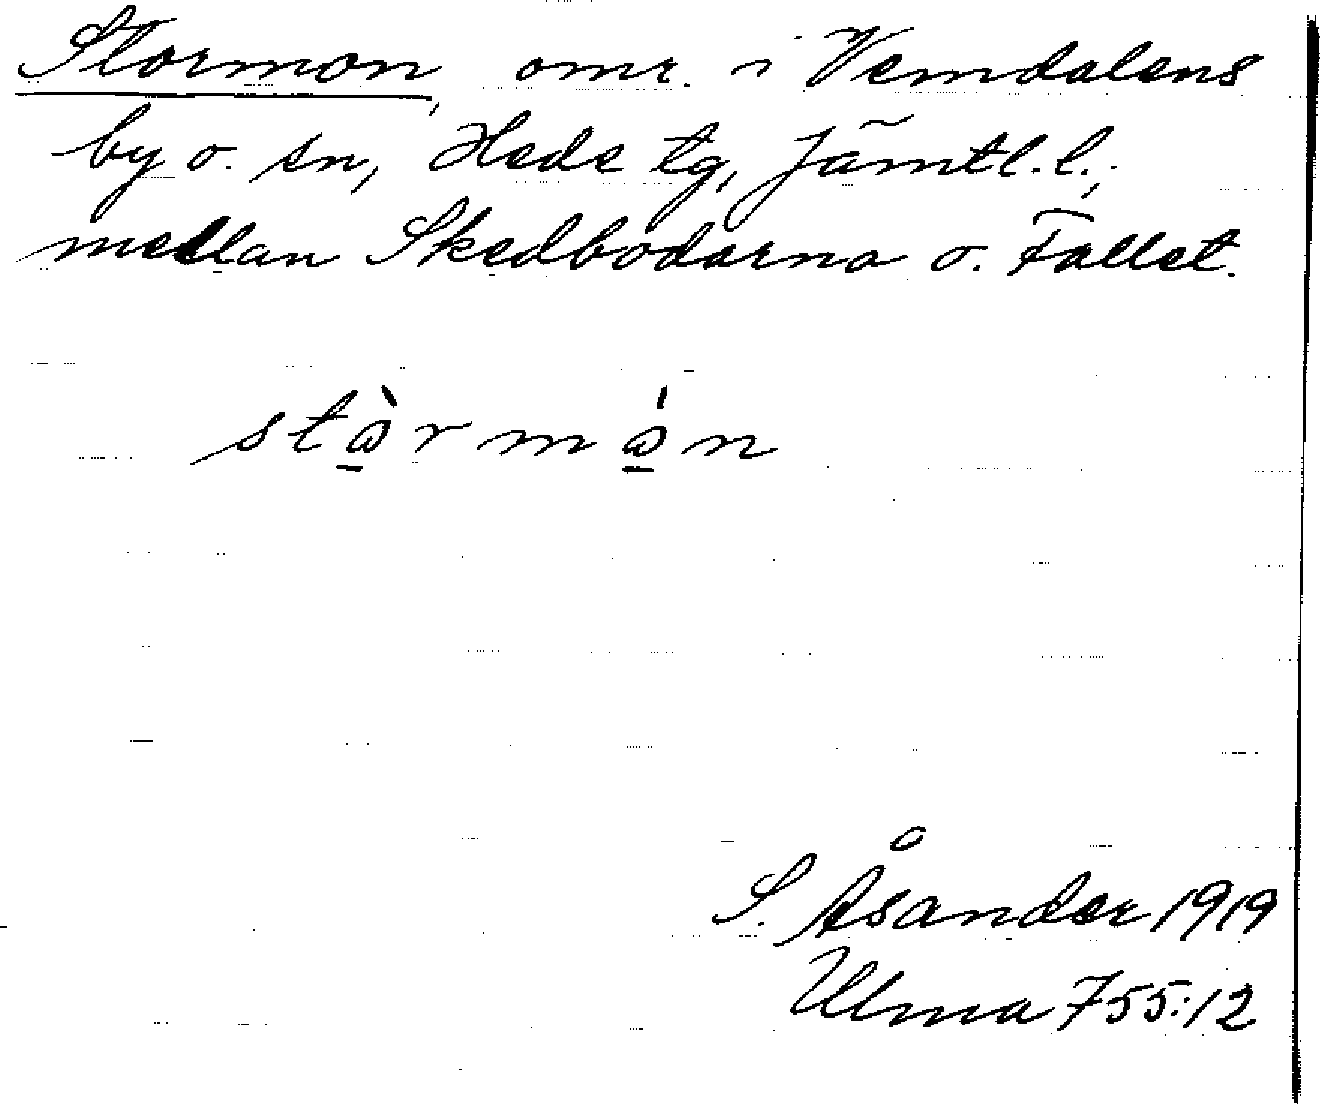 Stormon, omr. i Vemdalens
by o. sn, Hede tg, Jämtl. l.;
mellan Skedbodarna o. Fallet.
stὼ̠rmώ̠n
S. Åsander 1919
Ulma 755:12